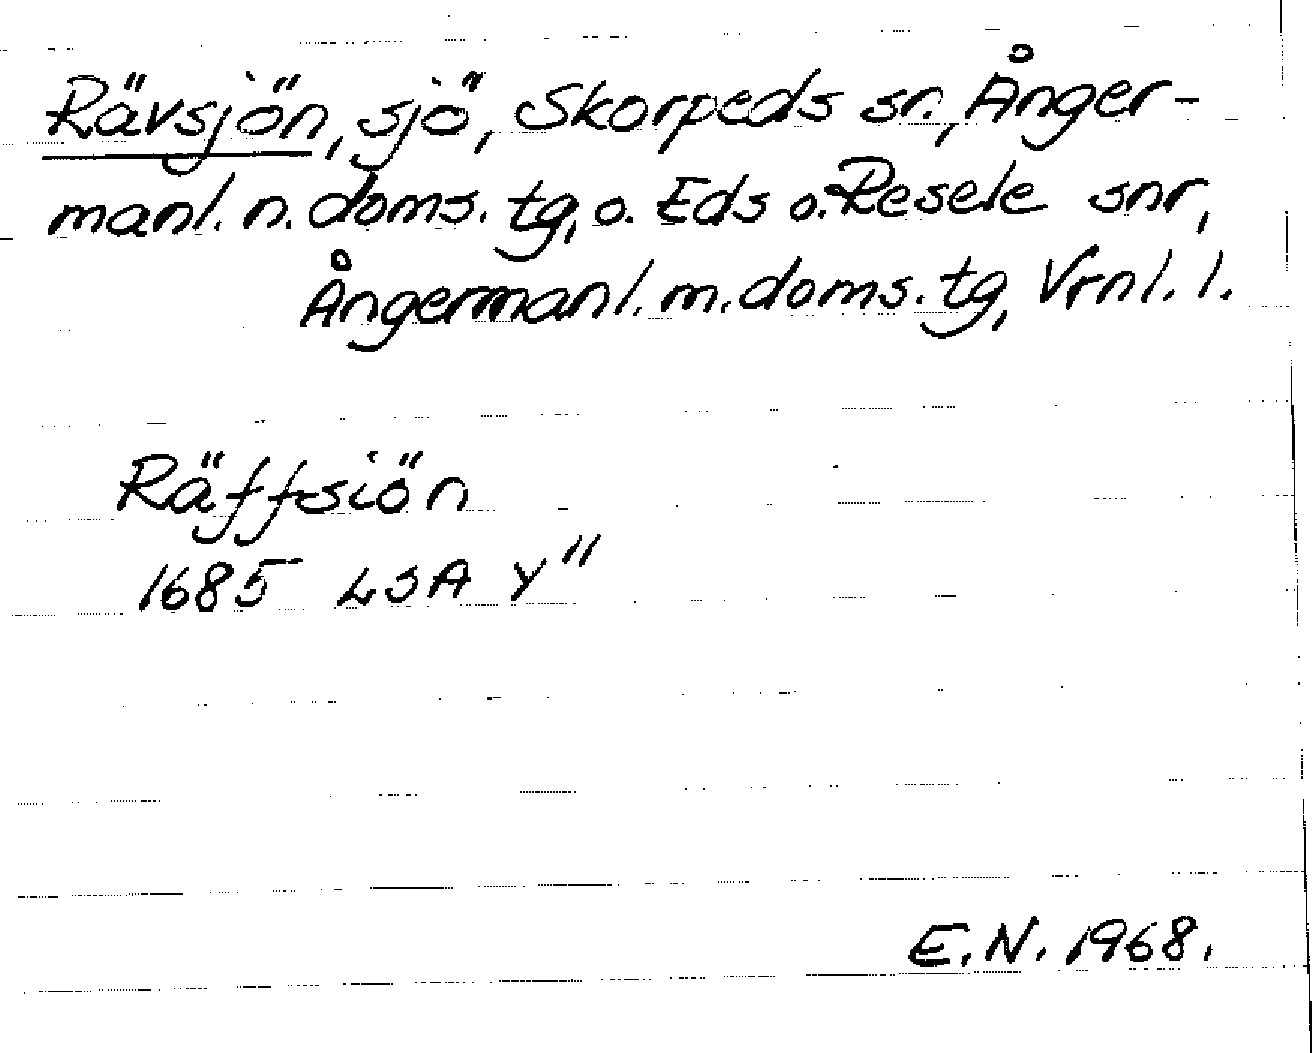 Rävsjön, sjö, Skorpeds sn., Ånger-
manl. n. doms. tg, o. Eds o. Resele snr,
Ångermanl. m. doms. tg, Vrnl. l.
Räffsiön
1685 LSA Y"
E.N. 1968.